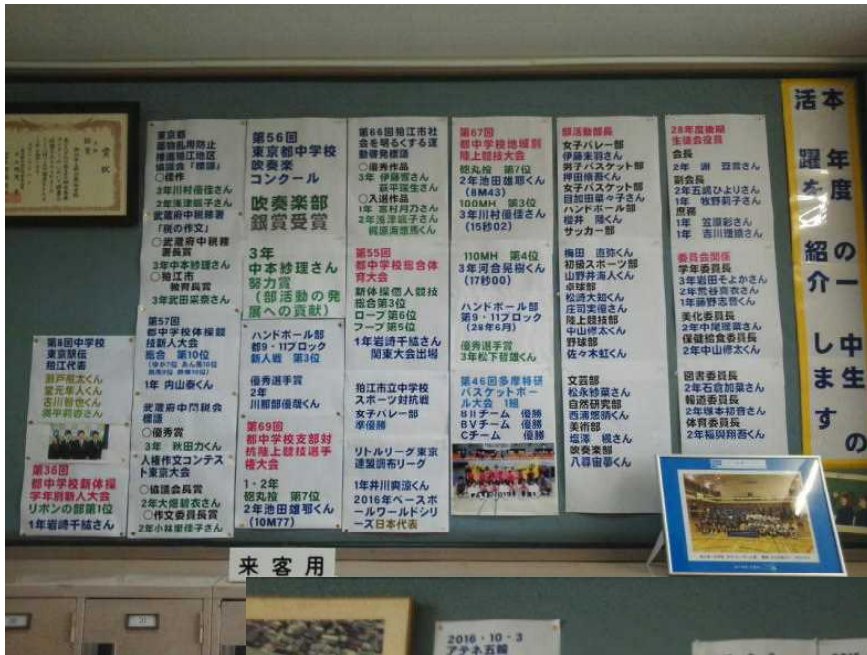 本年度の一中生の
活躍を紹介します
賞状
東京都
薬物乱用防止
推進狛江地区
協議会「標語」
○佳作
3年川村優佳さん
2年浅津端子さん
武蔵府中税務署
「税の作文」
○武蔵府中税務
署長賞
3年中本紗理さん
○狛江市
教育長賞
3年武田采奈さん
第8回中学校
東京駅伝
狛江代表
第36回
都中学校新体操
学年別新人大会
リボンの部第1位
1年岩崎千紘さん
第57回
都中学校体操競
技新人大会
総合 第10位
1年 内山泰くん
武蔵府中間税会
標語
○優秀賞
3年 秋田力くん
人権作文コンテス
ト東京大会
○協議会長賞
2年大畑碧衣さん
○作文委員長賞
2年小林里佳子さん
第56回
東京都中学校
吹奏楽
コンクール
吹奏楽部
銀賞受賞
3年
中本紗理さん
努力賞
(部活動の発
展への貢献)
ハンドボール部
都9・11ブロック
新人戦 第3位
優秀選手賞
2年
川那部優哉くん
第69回
都中学校支部対
抗陸上競技選手
権大会
1・2年
砲丸投 第7位
2年池田雄耶くん
(10M77)
第66回狛江市社
会を明るくする運
動啓発標語
○優秀作品
3年 伊藤雪さん
萩平瑞生さん
○入選作品
1年 富村月乃さん
2年浅津端子さん
梶原海悠馬くん
第55回
都中学校総合体
育大会
新体操個人競技
総合第3位
ロープ第6位
フープ第5位
1年岩崎千紘さん
関東大会出場
狛江市立中学校
スポーツ対抗戦
女子バレー部
準優勝
リトルリーグ東京
連盟調布リーグ
1年井川爽涼くん
2016年ベースボ
ールワールドシリ
ーズ日本代表
第67回
都中学校地域別
陸上競技大会
砲丸投 第7位
2年池田雄耶くん
(8M43)
100MH 第3位
3年川村優佳さん
(15秒02)
110MH 第4位
3年河合晃樹くん
(17秒00)
ハンドボール部
第9・11ブロック
(28年6月)
優秀選手賞
3年松下哲雄くん
第46回多摩特研
バスケットボー
ル大会 1組
BⅡチーム 優勝
BVチーム 優勝
Cチーム 優勝
部活動部長
女子バレー部
伊藤未羽さん
男子バスケット部
押田脩吾くん
女子バスケット部
目加田菜々子さん
ハンドボール部
櫻井 陸くん
サッカー部
梅田 直弥くん
初級スポーツ部
山野井海人くん
卓球部
松崎大知くん
庄司実優さん
陸上競技部
中山修太くん
野球部
佐々木虹くん
文芸部
松永紗菜さん
自然研究部
西浦悠晴くん
美術部
塩澤 楓さん
吹奏楽部
八尋宙夢くん
28年度後期
生徒会役員
会長
2年 謝 亞霏さん
副会長
2年五嶋ひよりさん
1年 牧野莉子さん
庶務
1年 笠原彩さん
1年 吉川理瑛さん
委員会関係
学年委員長
3年岩田そよかさん
2年荒谷真衣さん
1年藤野志音くん
美化委員長
2年中尾瑠菜さん
保健給食委員長
2年中山修太くん
図書委員長
2年石倉加菜さん
報道委員長
2年塚本初音さん
体育委員長
2年福與翔吾くん
来客用
2016・10・3
アテネ五輪